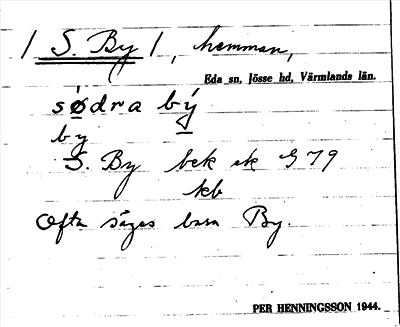 / S. By /, hemman,
Eda sn, Jösse hd, Värmlands län.
södra bý
by
S. By bek ek G 79
kb
Ofta säges bara By.
PER HENNINGSSON 1944.